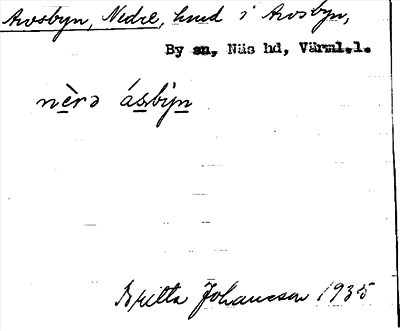 Avosbyn, Nedre, hmd i Avosbyn,
By sn, Näs hd, Värml.l.
nèrə ásbẏn
Britta Johansson 1935